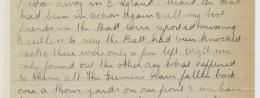 I was away in England. I heard the Batt
had been in action again & all my best
friends in the Batt were wounded
needless to say the Batt had been knocked
there were only a few left
only found out the other day what happened
to them all the Germans have fallen back
over a thous yards on our front & we have